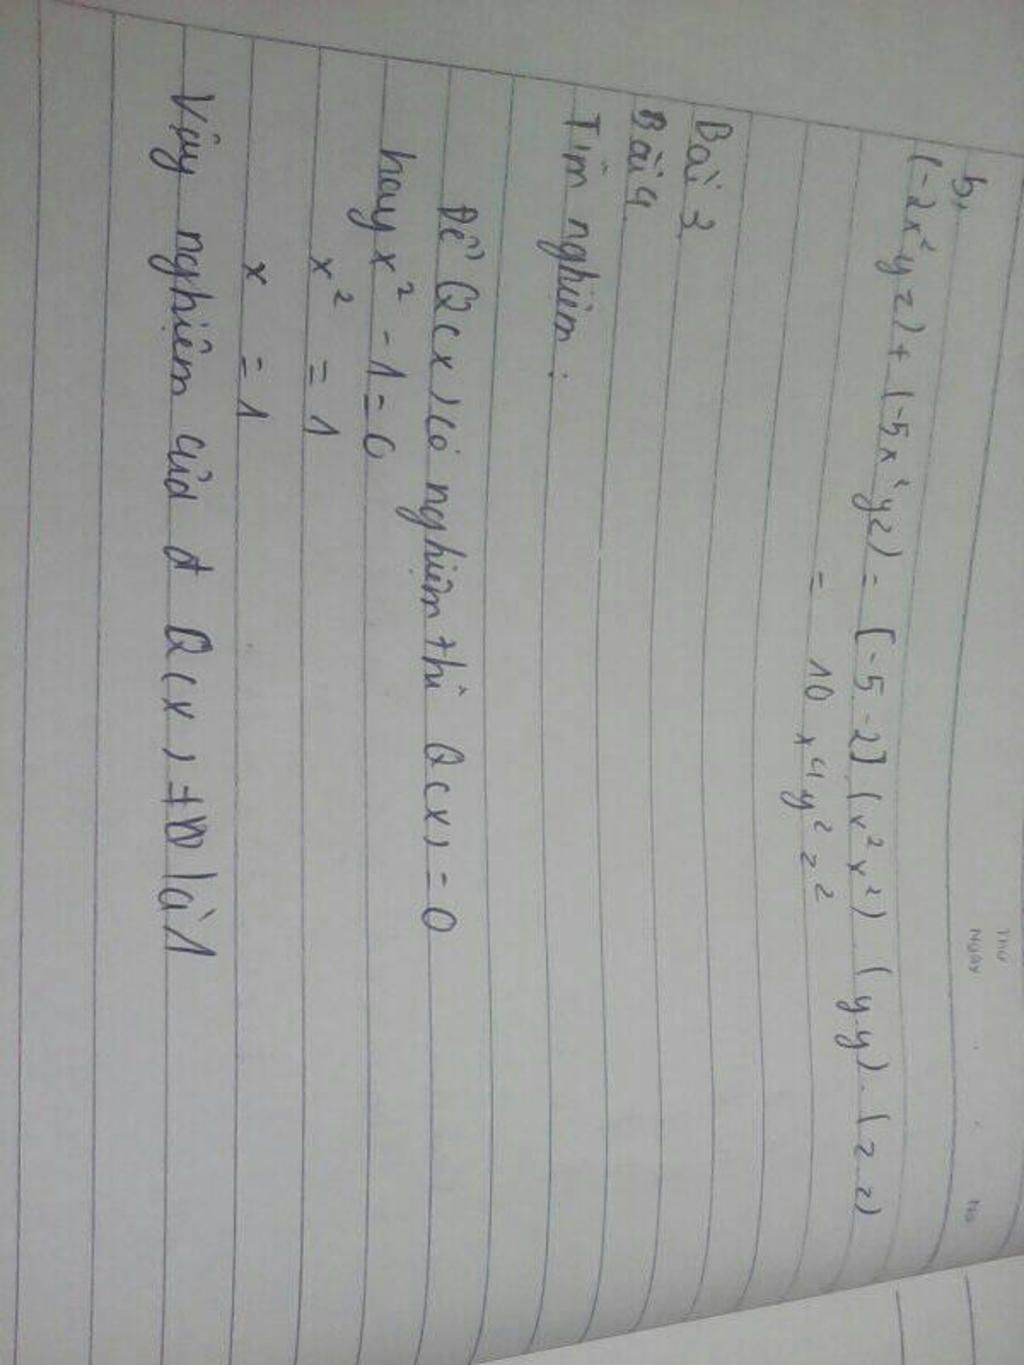 Thứ
Ngày
No
b,
(-2x²yz) + (-5x²yz) = [-5 -2] (x² x²) . (y y) . (z z)
= 10 x⁴y² z²
Bài 3
Bài 4
Tìm nghiệm :
Để Q(x) có nghiệm thì Q(x) = 0
hay x² - 1 = 0
x² = 1
x = 1
Vậy nghiệm của đt Q(x) là 1